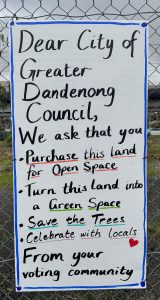 Dear City of
Greater
Dandenong
Council,
We ask that you
• Purchase this land
for Open Space
• Turn this land into
a Green Space
• Save the Trees
• Celebrate with locals
From your
voting community